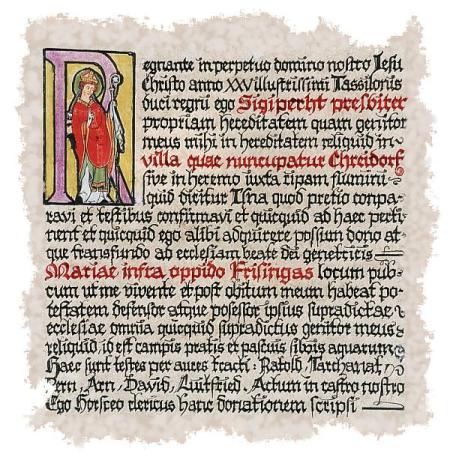 Regnante in perpetuo domino nostro Iesu
Christo anno XXV illustrissimi Tassilonis
duci regnū ego Sigiperht presbiter
propriam hereditatem quam genitor
meus mihi in hereditatem reliquid in
villa quae nuncupatur Chreidorf
sive in heremo iuxta ripam fluminis
quid dicitur Isna quod pretio conpa-
ravi et testibus confirmavi et quicquid ad haec perti-
nent et quicquid ego alibi adquirere possum dono at-
que transfundo ad ecclesiam beate dei genetricis
Mariae infra oppido Frisingas locum pub-
cum ut me vivente et post obitum meum habeat po-
testatem defensor atque posesor ipsius supradictae
ecclesiae omnia quicquid supradictus genitor meus
reliquid id est campis pratis et pascuis silvis aquarum
Haec sunt testes per aures tracti: Ratolf, Tarchanat,
Pern, Arn, David, Liutfrid. Actum in castro nostro
Ego Horskeo clericus hanc donationem scripsi